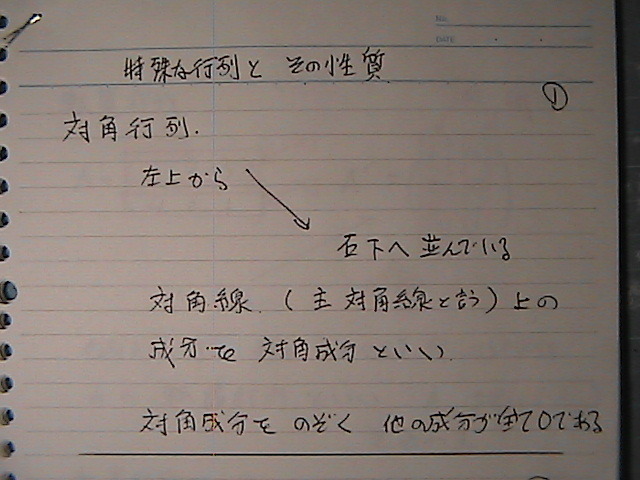 NO.
DATE
特殊な行列と その性質
①
対角行列.
左上から
右下へ 並んでいる
対角線. (主対角線と言う)上の
成分を 対角成分 といい
対角成分を のぞく 他の成分が全て0である